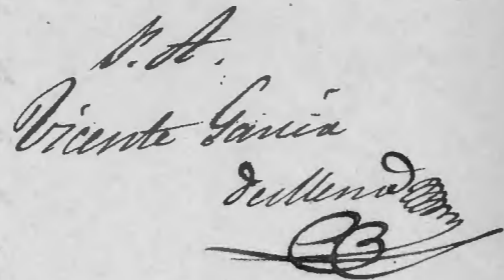 P. A.
Vicente Garcia
de Mena